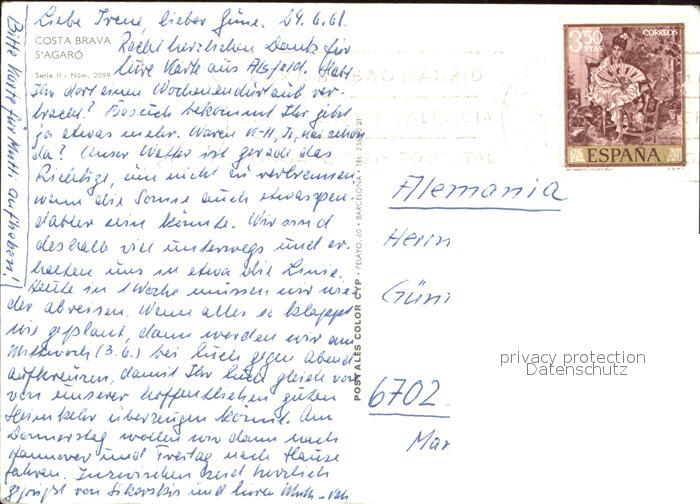 Liebe Irene, lieber Günt. 24.6.68.
COSTA BRAVA
S'AGARÓ
Serie II - Núm. 2099
Recht herzlichen Dank für
Eure Karte aus Alsfeld. Habt
Ihr dort einen Wochenendurlaub ver-
bracht? Besuch bekommt Ihr jetzt
ja etwas mehr. Waren schon
da? Unser Wetter ist gerade das
Richtige, um nicht zu verbrennen,
wenn die Sonne auch etwas spen-
dabler sein könnte. Wir sind
deshalb viel unterwegs und er-
halten uns in etwa die Linie.
Heute in 1 Woche müssen wir wie-
der abreisen. Wenn alles so klappt
wie geplant, dann werden wir am
Mittwoch (3.6.) bei Euch gegen Abend
aufkreuzen, damit Ihr Euch gleich von
von unserer hoffentlichen guten
Heimkehr überzeugen könnt. Am
Donnerstag wollen wir dann nach
Hannover und Freitag nach Hause
fahren. Inzwischen seid herzlich
gegrüßt von Sikorskis und Euren Mutti - Vati
Bitte Karte für Mutti aufheben!
POSTALES COLOR CYP · PELAYO, 60 · BARCELONA · TEL.
BILBAO MADRID
VALENCIA
POSTAL
3'50
PTAS
CORREOS
ESPAÑA
Alemania
Herrn
Günt
6702
Mar
privacy protection
Datenschutz